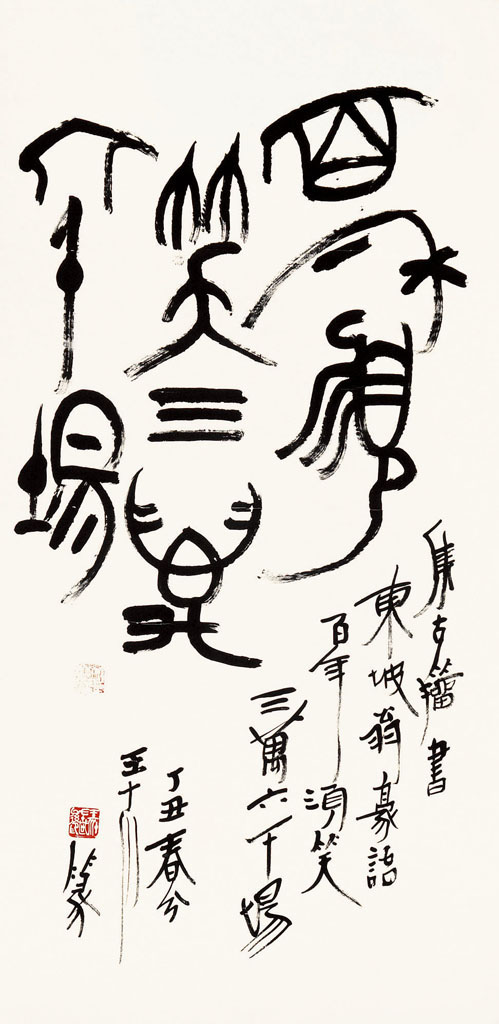 百年須
笑三萬
六千場
集古籀書
東坡翁豪語
百年須笑
三萬六千場
丁丑春分
王十川
篆